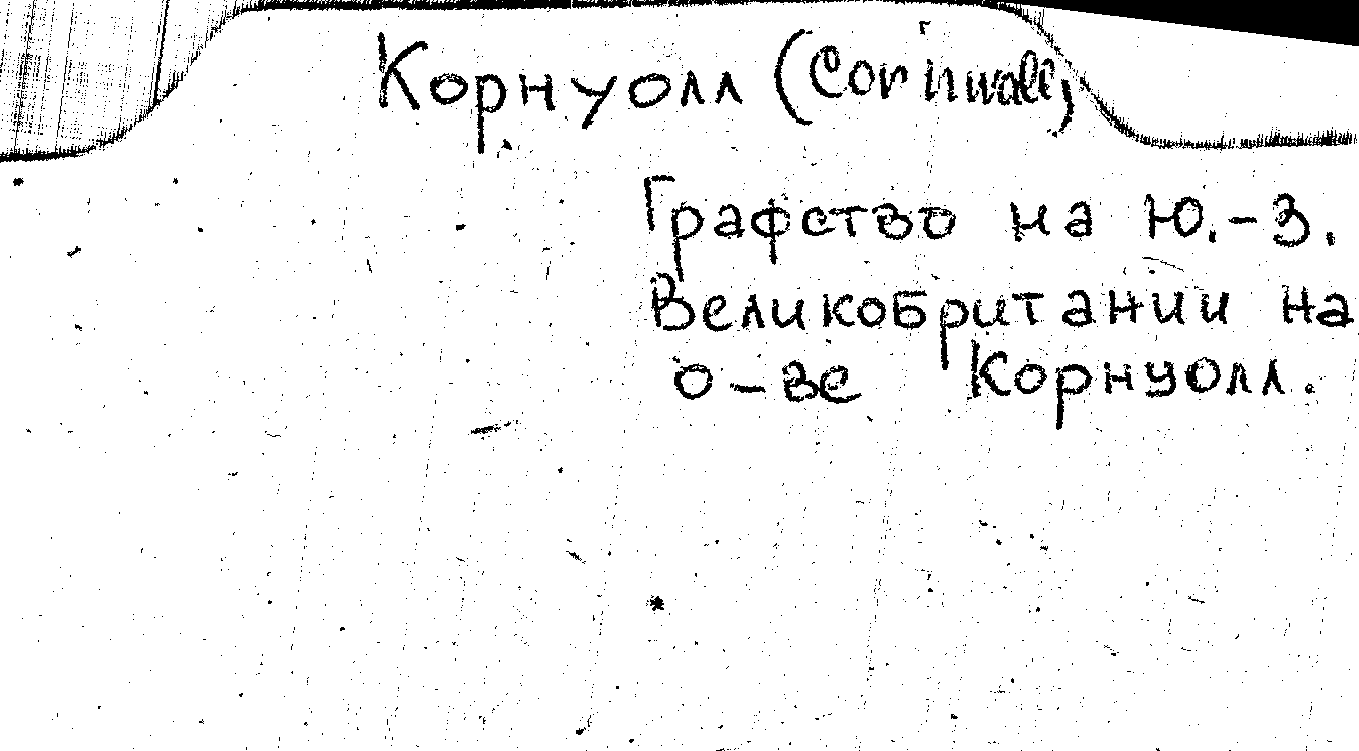 Корнуолл (Cornwall)
Графство на Ю.-З.
Великобритании на
о-ве Корнуолл.